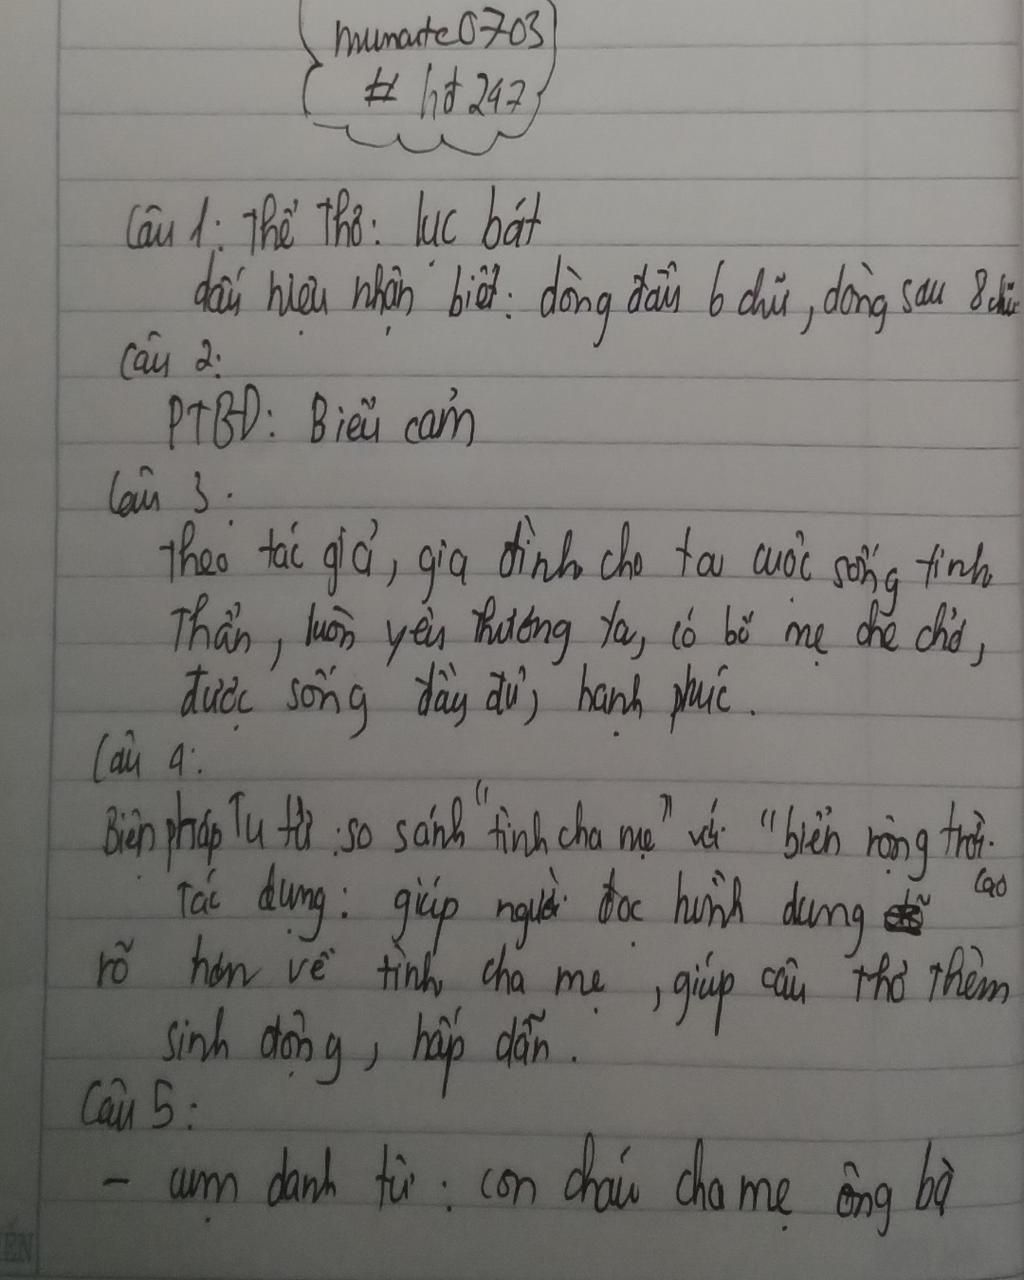 munarte0703
# hđ247
Câu 1: Thể thơ: lục bát
dấu hiệu nhận biết: dòng đầu 6 chữ, dòng sau 8 chữ
Câu 2:
PTBĐ: Biểu cảm
Câu 3:
Theo tác giả, gia đình cho ta cuộc sống tinh
Thần, luôn yêu thương ta, có bố mẹ che chở,
được sống đầy đủ, hạnh phúc.
Câu 4:
Biện pháp Tu từ: so sánh "tình cha mẹ" với "biển rộng trời
cao
Tác dụng: giúp người đọc hình dung
rõ hơn về tình cha mẹ, giúp câu thơ thêm
sinh động, hấp dẫn.
Câu 5:
- cụm danh từ: con cháu cha mẹ ông bà